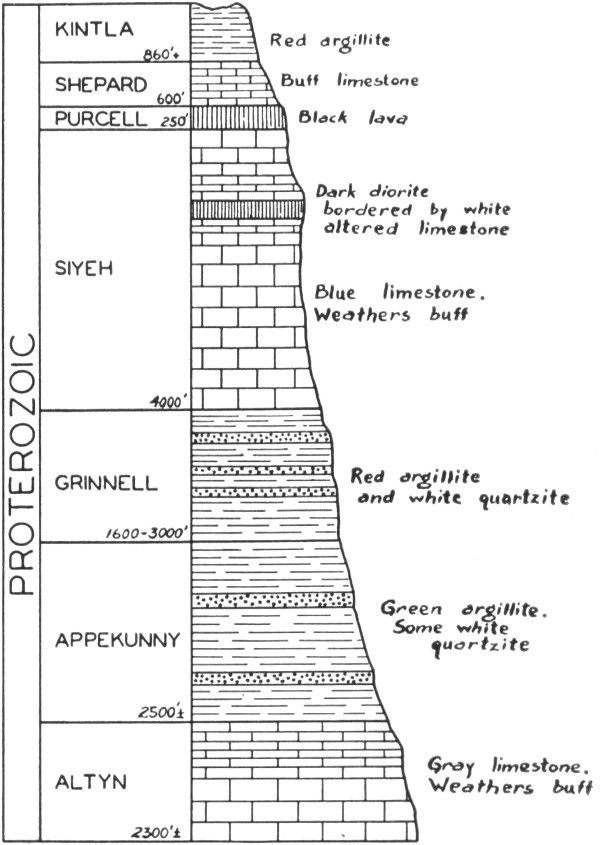 PROTEROZOIC
KINTLA
860'+
Red argillite
SHEPARD
600'
Buff limestone
PURCELL 250'
Black lava
SIYEH
4000'
Dark diorite
bordered by white
altered limestone
Blue limestone.
Weathers buff
GRINNELL
1600-3000'
Red argillite
and white quartzite
APPEKUNNY
2500'±
Green argillite.
Some white
quartzite
ALTYN
2300'±
Gray limestone.
Weathers buff